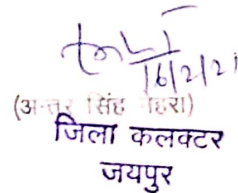 16/2/21
(अन्तर सिंह नेहरा)
जिला कलक्टर
जयपुर